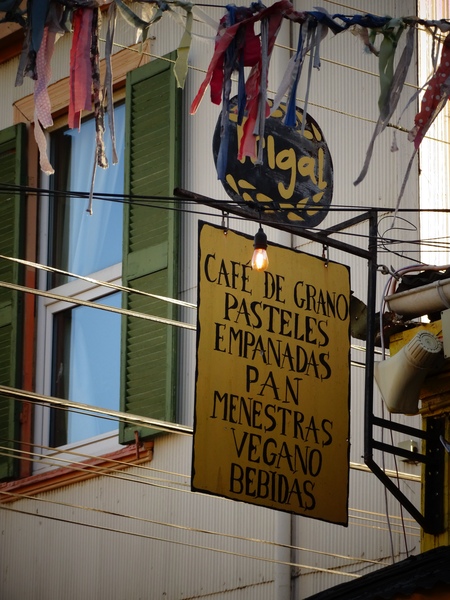 CAFÉ DE GRANO
PASTELES
EMPANADAS
PAN
MENESTRAS
VEGANO
BEBIDAS